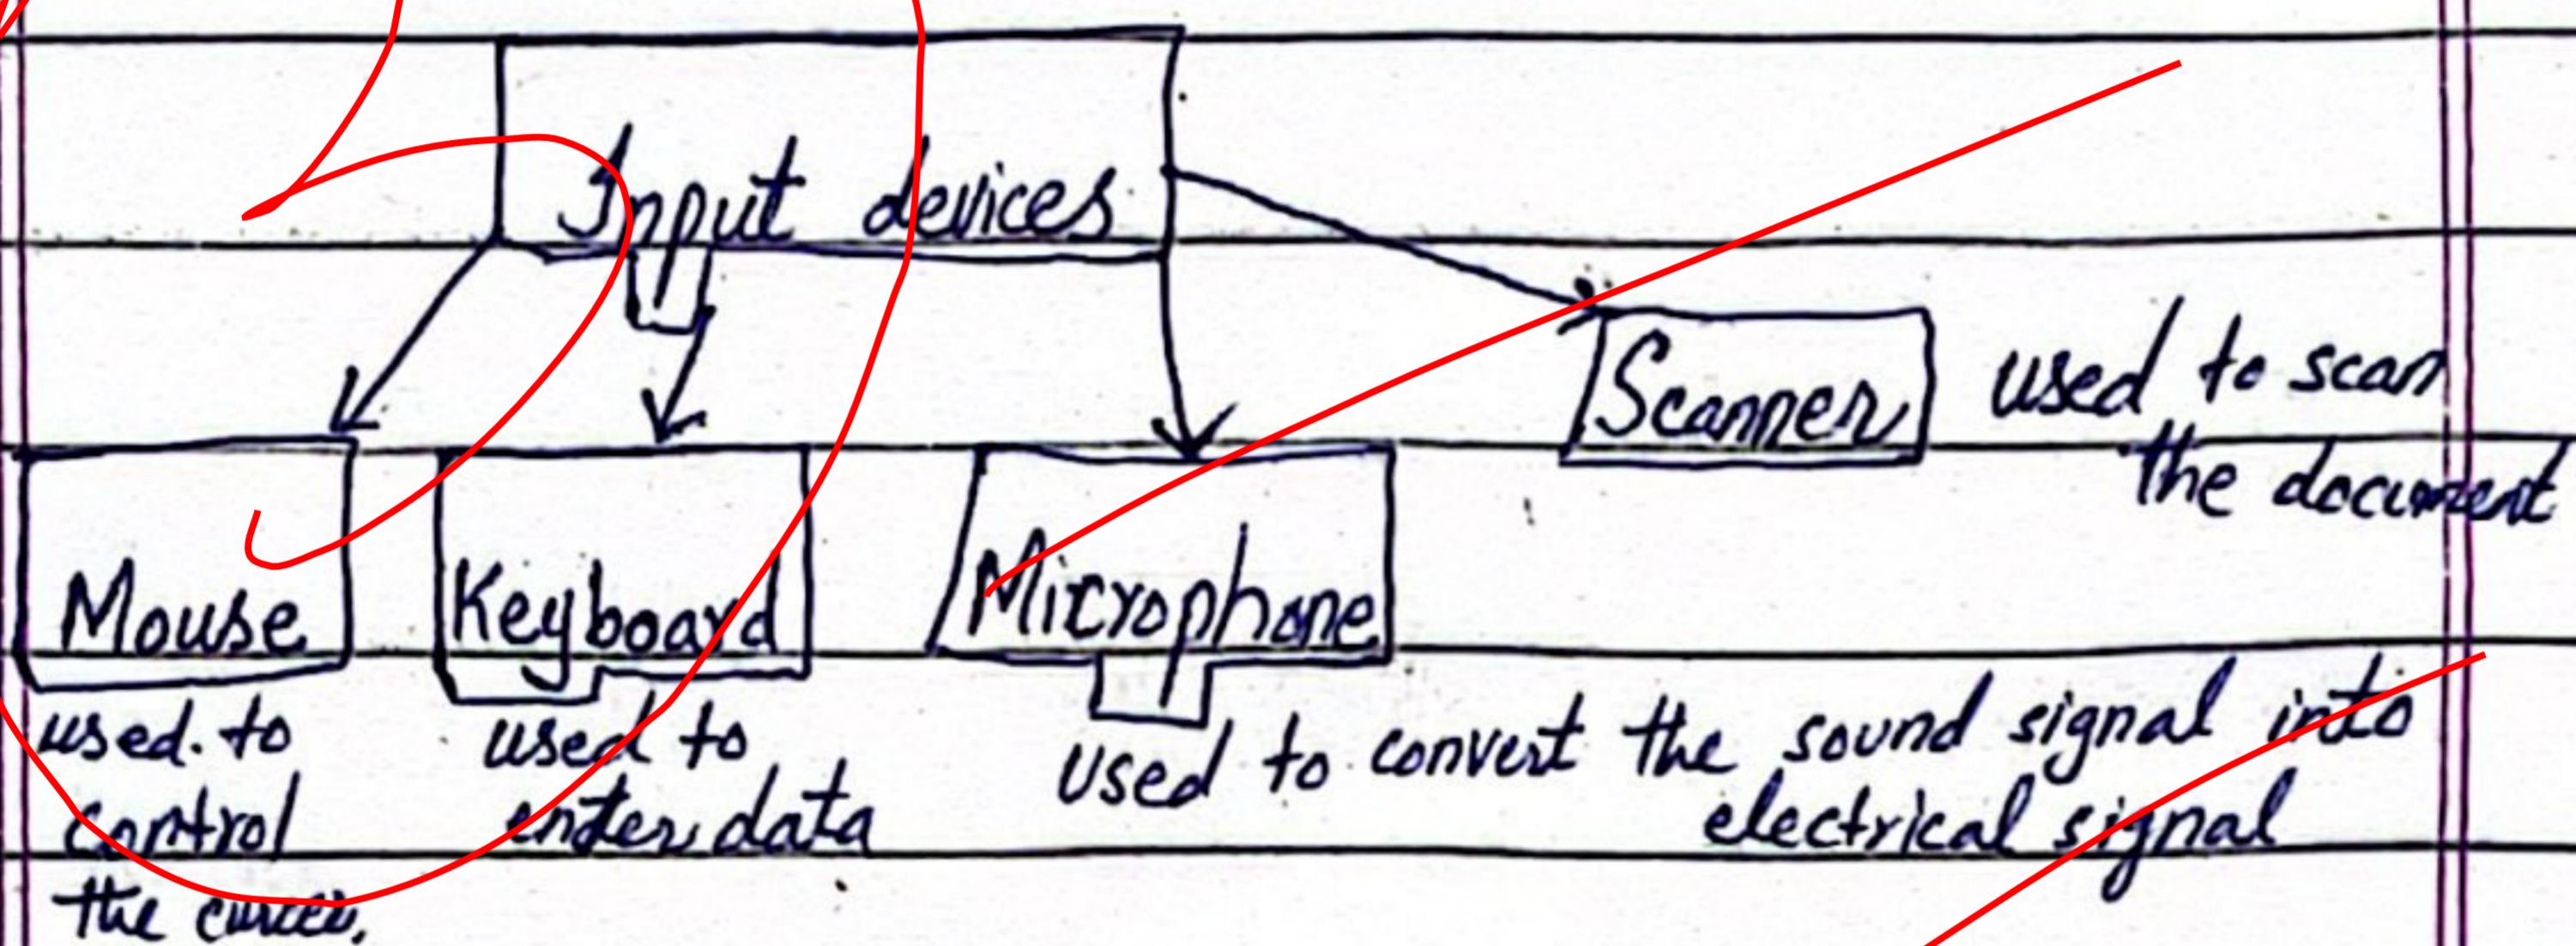 Input devices
Scanner used to scan
the document
Mouse Keyboard Microphone
used. to
control
the
used to
enter data
used to convert the sound signal into
electrical signal